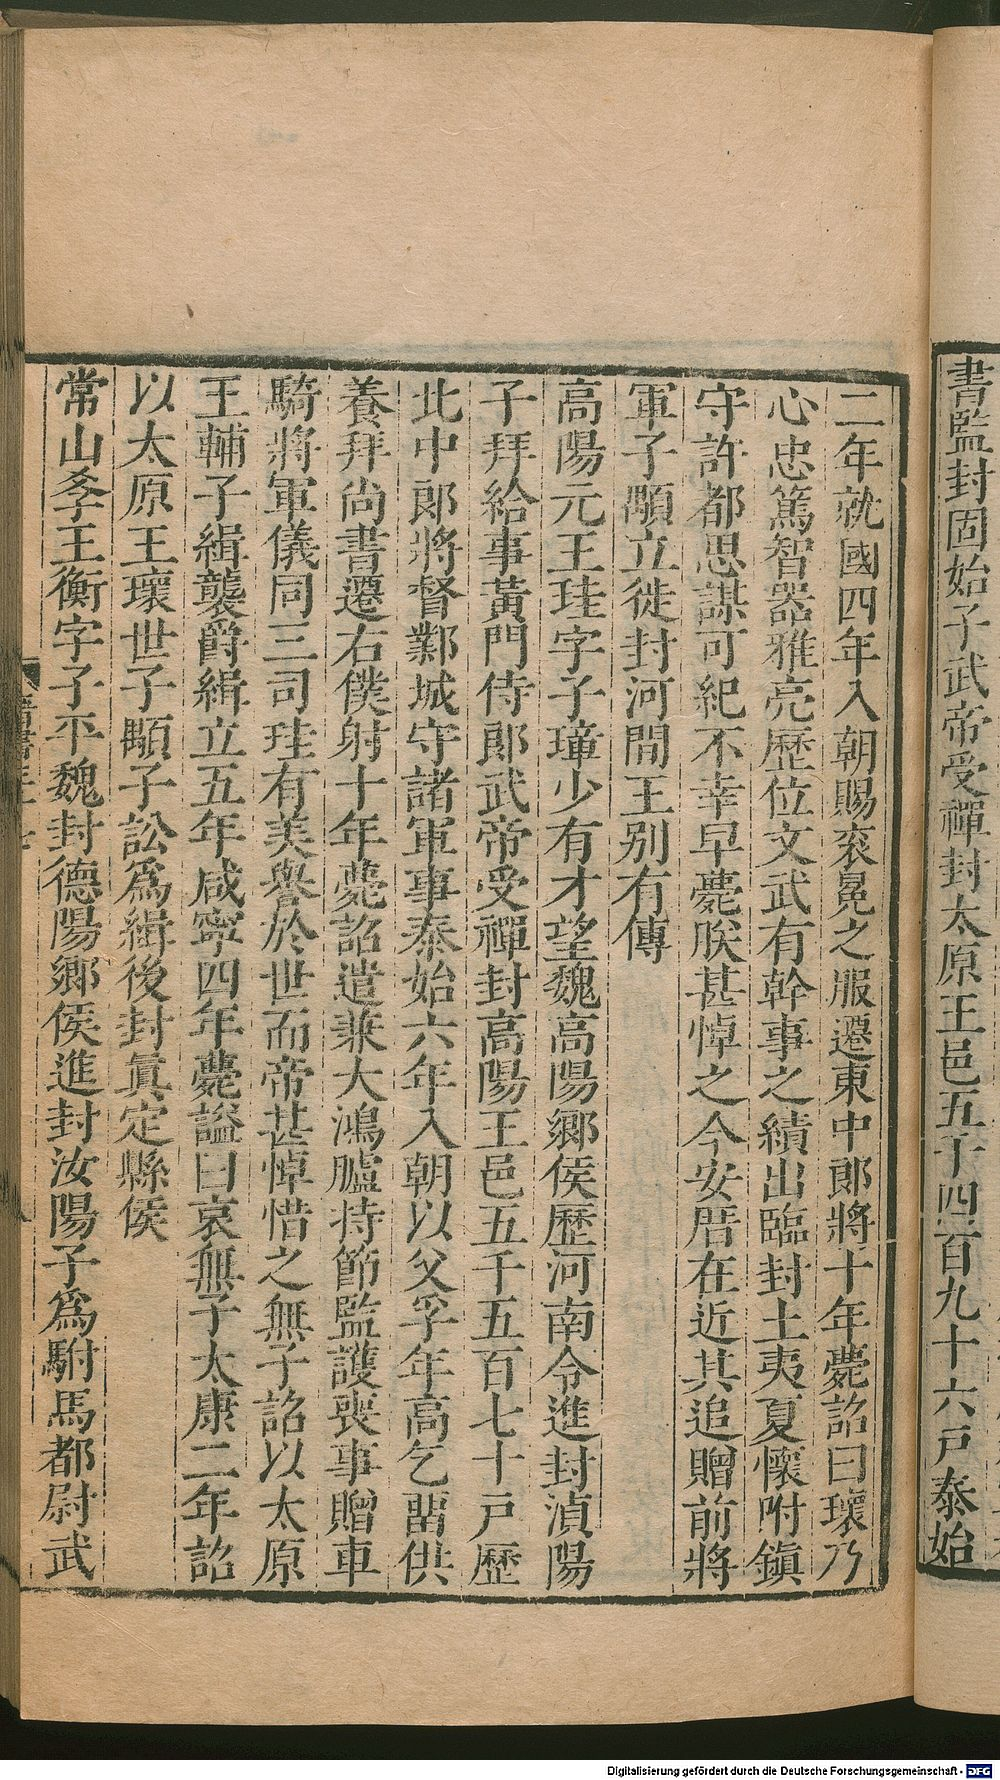 書監封固始子武帝受禪封太原王邑五千四百九十六戸泰始
二年就國四年入朝賜衮冕之服遷東中郎將十年薨詔曰瓌乃
心忠篤智器雅亮歷位文武有幹事之績出臨封土夷夏懷附鎭
守許都思謀可紀不幸早薨朕甚悼之今安厝在近其追贈前將
軍子顒立徙封河間王别有傳
高陽元王珪字子璋少有才望魏高陽鄉侯歷河南令進封湞陽
子拜給事黃門侍郎武帝受禪封高陽王邑五千五百七十戸歷
北中郎將督鄴城守諸軍事泰始六年入朝以父孚年高乞畱供
養拜尚書遷右僕射十年薨詔遣兼大鴻臚持節監護喪事贈車
騎將軍儀同三司珪有美譽於世而帝甚悼惜之無子詔以太原
王輔子緝襲爵緝立五年咸寧四年薨謚曰哀無子太康二年詔
以太原王瓌世子顒子訟爲緝後封眞定縣侯
常山孝王衡字子平魏封德陽鄉侯進封汝陽子爲駙馬都尉武
Digitalisierung gefördert durch die Deutsche Forschungsgemeinschaft - DFG